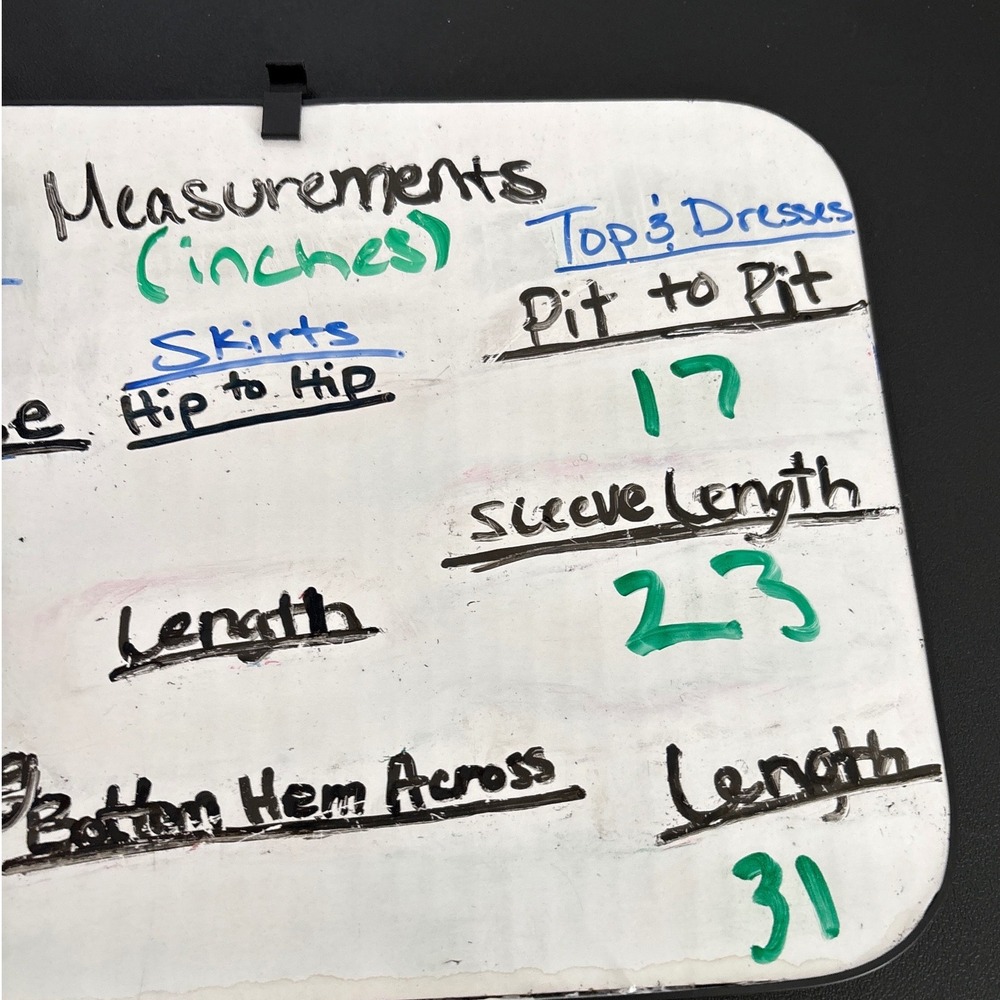 Measurements
(inches)
Skirts
Hip to Hip
Length
Bottom Hem Across
Top & Dresses
Pit to Pit
17
Sleeve Length
23
Length
31